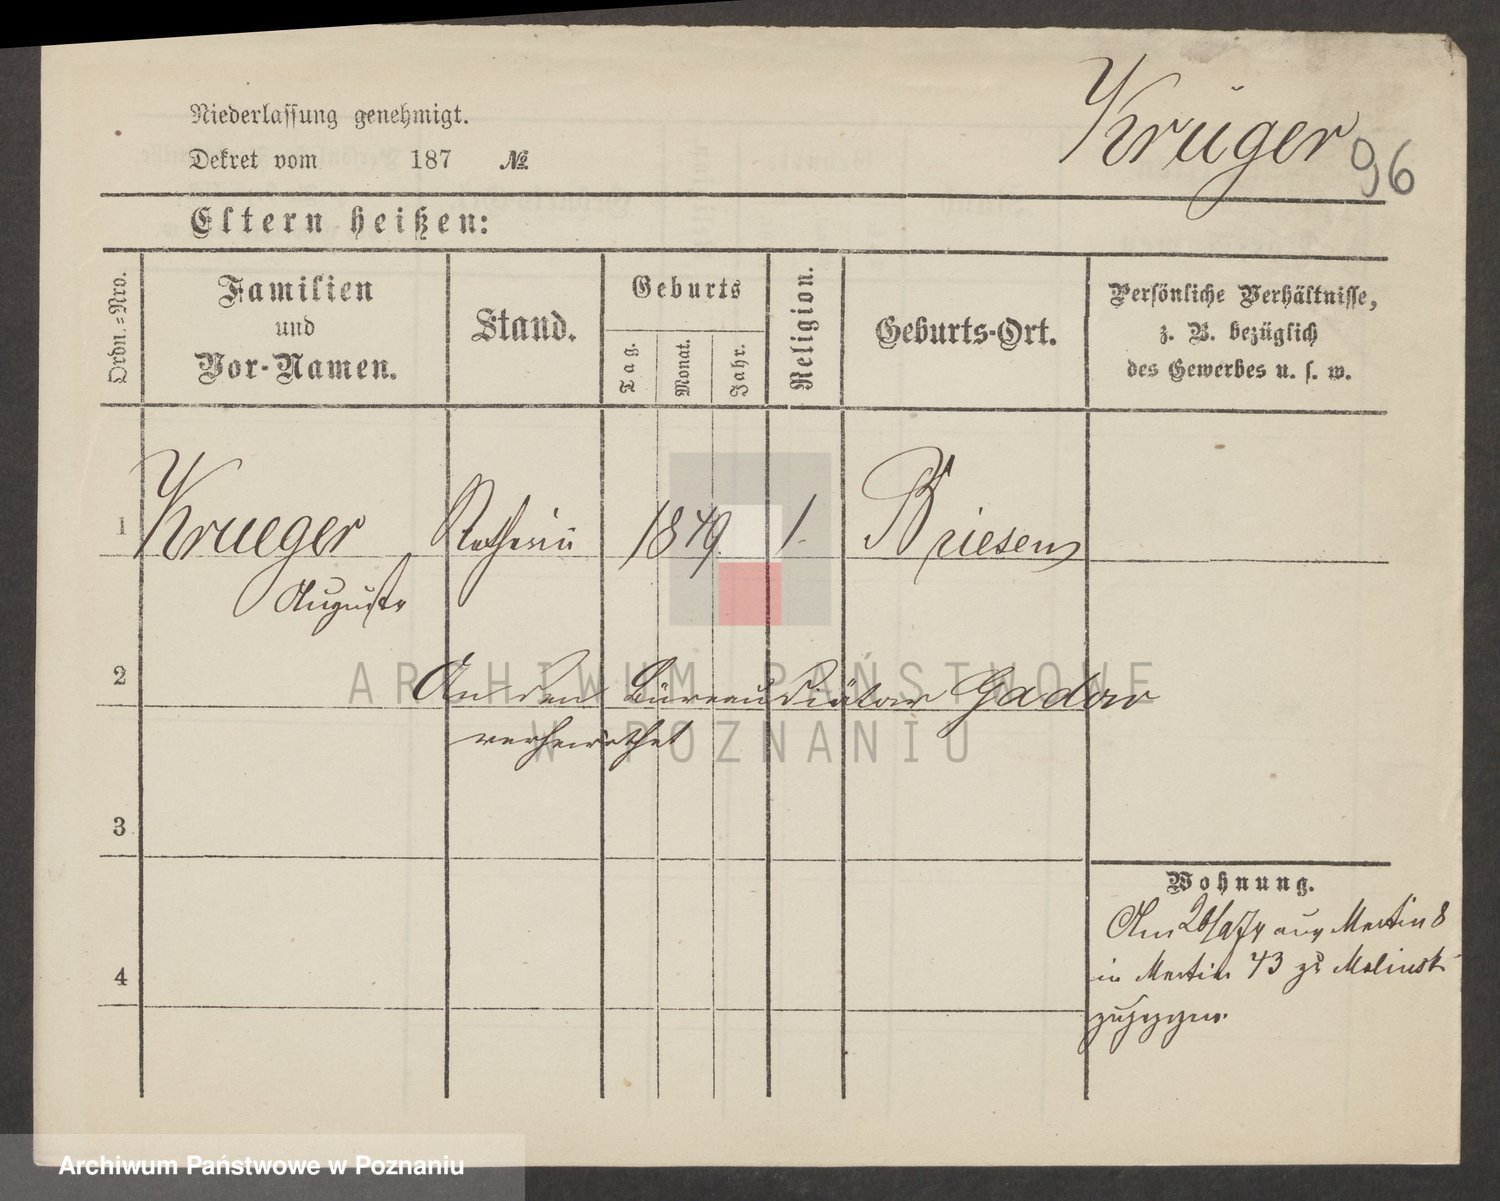 Niederlassung genehmigt.
Krüger
96
Dekret vom 187 №
Eltern heißen:
Ordn.-Nro.
Familien
und
Vor-Namen.
Stand.
Geburts
Tag.
Monat.
Jahr.
Religion.
Geburts-Ort.
Persönliche Verhältnisse,
z. B. bezüglich
des Gewerbes u. s. w.
1 Krueger 1849 Briesen
Auguste
2 An den Büreau Diätar Gadow
verheirathet
3
Wohnung.
Am aus Martin 8
4
in Martin 43 zu
zugezogen.
ARCHIWUM PAŃSTWOWE
W POZNANIU
Archiwum Państwowe w Poznaniu